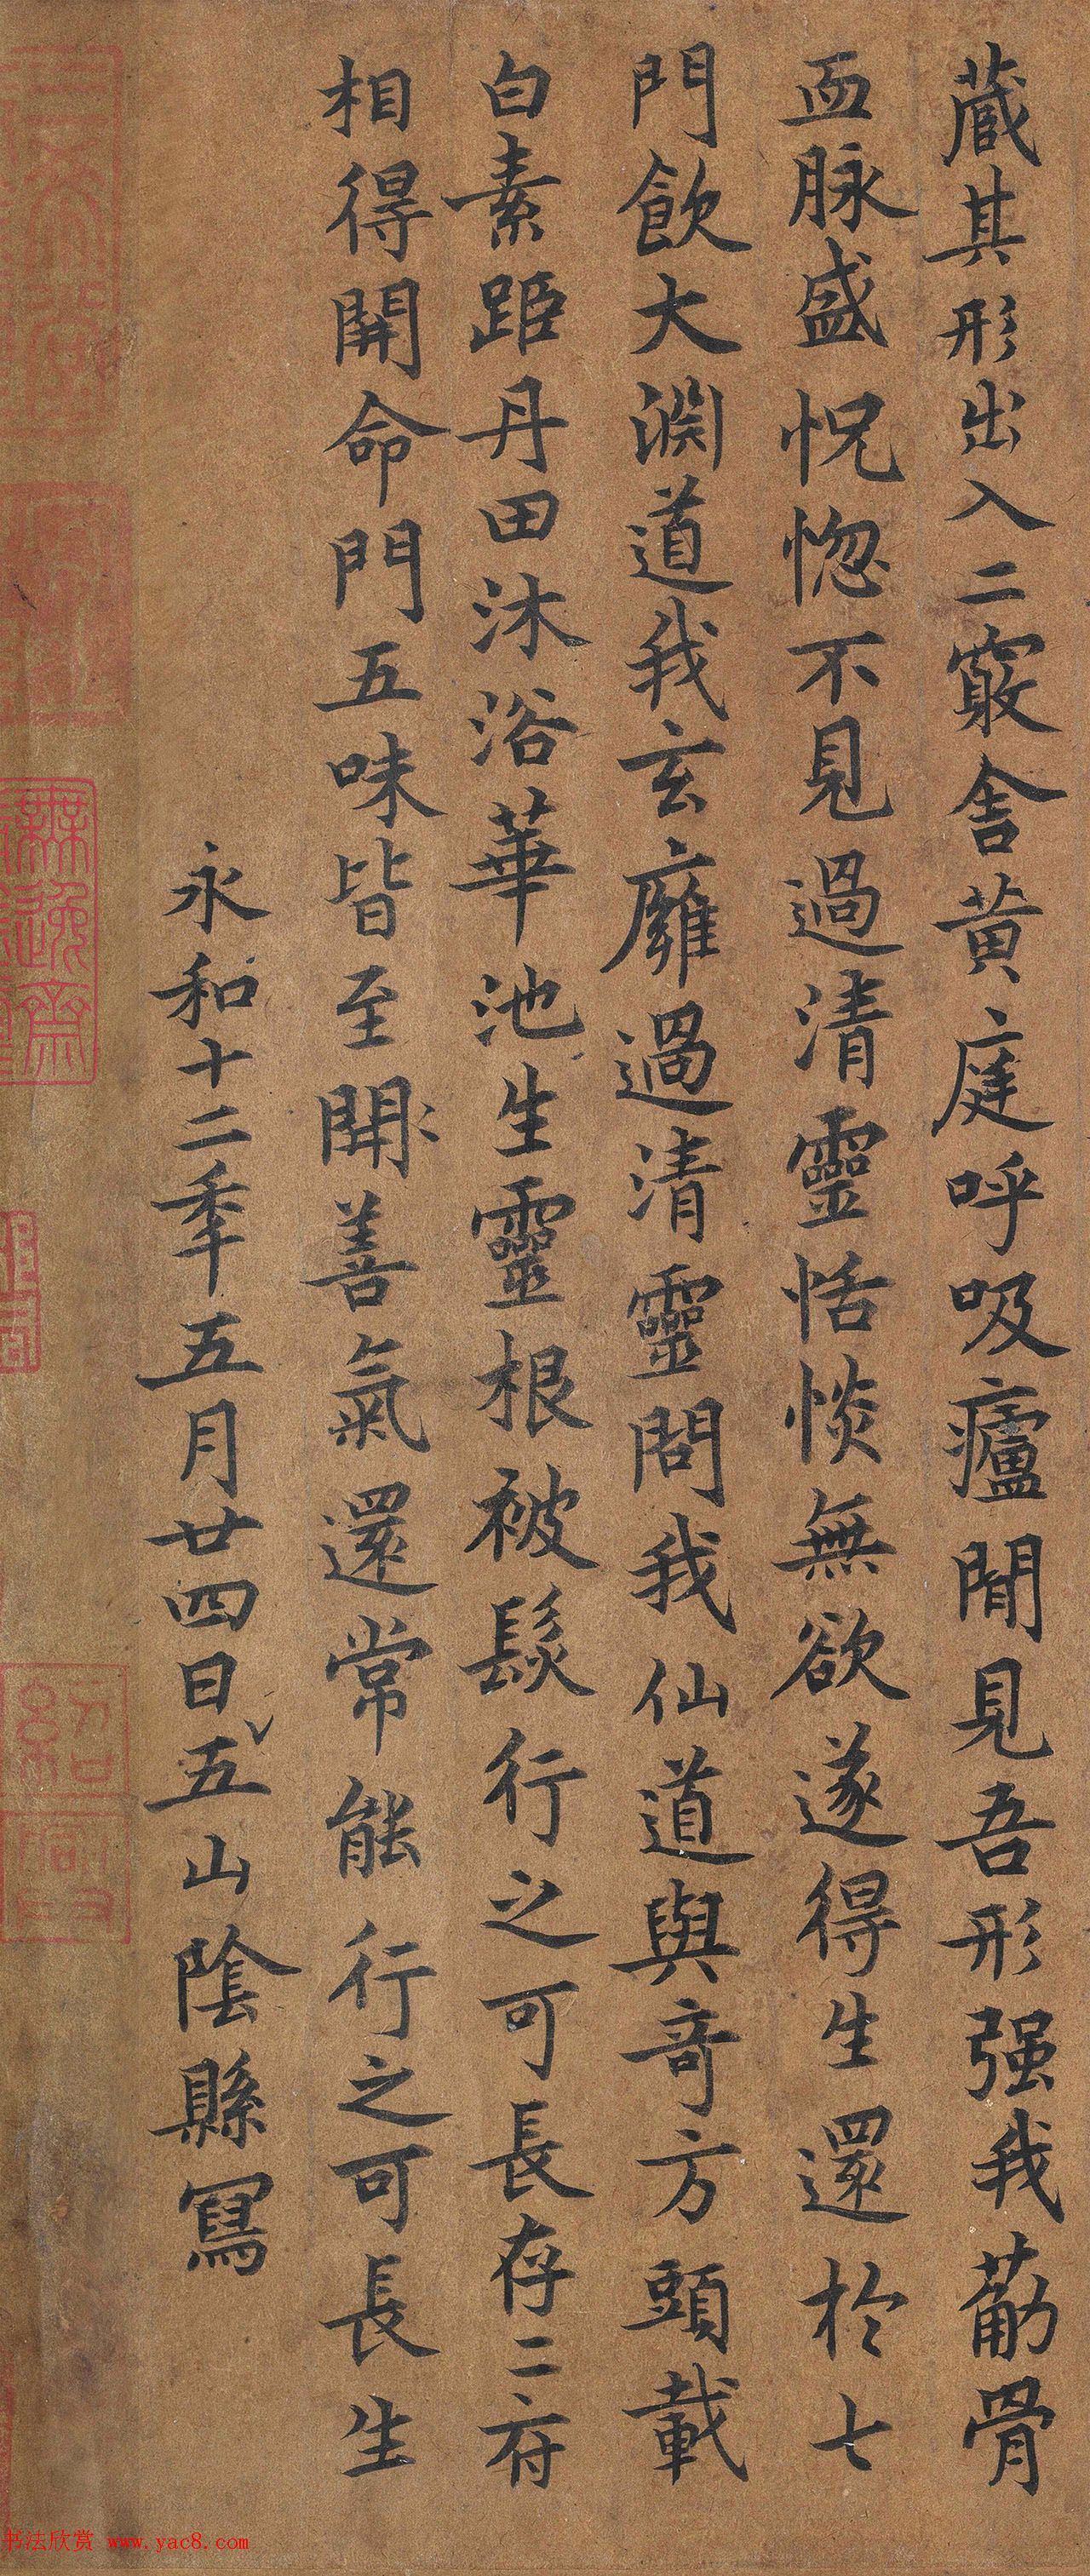 藏其形出入二竅舍黃庭呼吸廬間見吾形强我筋骨
血脉盛怳惚不見過清靈恬惔無欲遂得生還於七
門飲大淵道我玄廱過清靈問我仙道與奇方頭載
白素距丹田沐浴華池生靈根被髮行之可長存二府
相得開命門五味皆至開善氣還常能行之可長生
永和十二年五月廿四日五山陰縣寫
書法欣赏 www.yac8.com